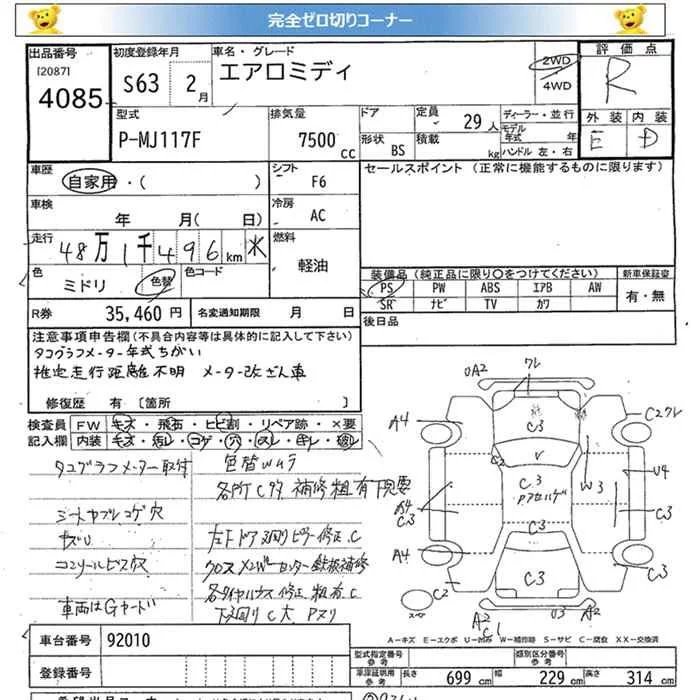 完全ゼロ切りコーナー
出品番号
[2087]
4085
初度登録年月
S63 2月
車名・グレード
エアロミディ
2WD
4WD
評価点
R
型式
P-MJ117F
排気量
7500 cc
ドア
形状 BS
定員 29人
積載 kg
ディーラー・並行
モデル年式 年
ハンドル 左・右
外装 内装
E D
車歴
自家用・( )
シフト
F6
セールスポイント (正常に機能するものに限ります)
車検
年 月( 日)
冷房
AC
走行
48万1千496km
燃料
軽油
色
ミドリ
色替
色コード
装備品(純正品に限り〇をつけてください)
新車保証書
PS PW ABS エアB AW
SR ナビ TV カワ
有・無
R券 35,460 円
名変通知期限 月 日
後日品
注意事項申告欄(不具合内容等は具体的に記入して下さい)
タコグラフメーター年式ちがい
推定走行距離不明 メーター改ざん車
修復歴 有 〔箇所 〕
検査員記入欄
FW キズ・飛石・ヒビ割・リペア跡・×要
内装 キズ・汚レ・コゲ・穴・スレ・キレ・破レ
タコグラフメーター取付
色替ムラ
各所Cタタ 補修粗有 下見要
シートヤブレ コゲ穴
キズU
コンソールビス穴
クロスメンバーセンター鉄板補修
各タイヤハウス修正 粗有 C
下廻りC大 Pヌリ
ワレ
UA2
A4
C3
C2ワレ
C2
V
U4
W3
C3
A4
C3
C3
C3
A4
C3
C3
C2
A2
C1
U3
A2
A-キズ E-エクボ U-凹み W-補修跡 S-サビ C-腐食 XX-交換済
車台番号 92010
登録番号
型式指定番号 参考
類別区分番号 参考
車庫証明用 参考
長さ 699 cm
幅 229 cm
高さ 314 cm